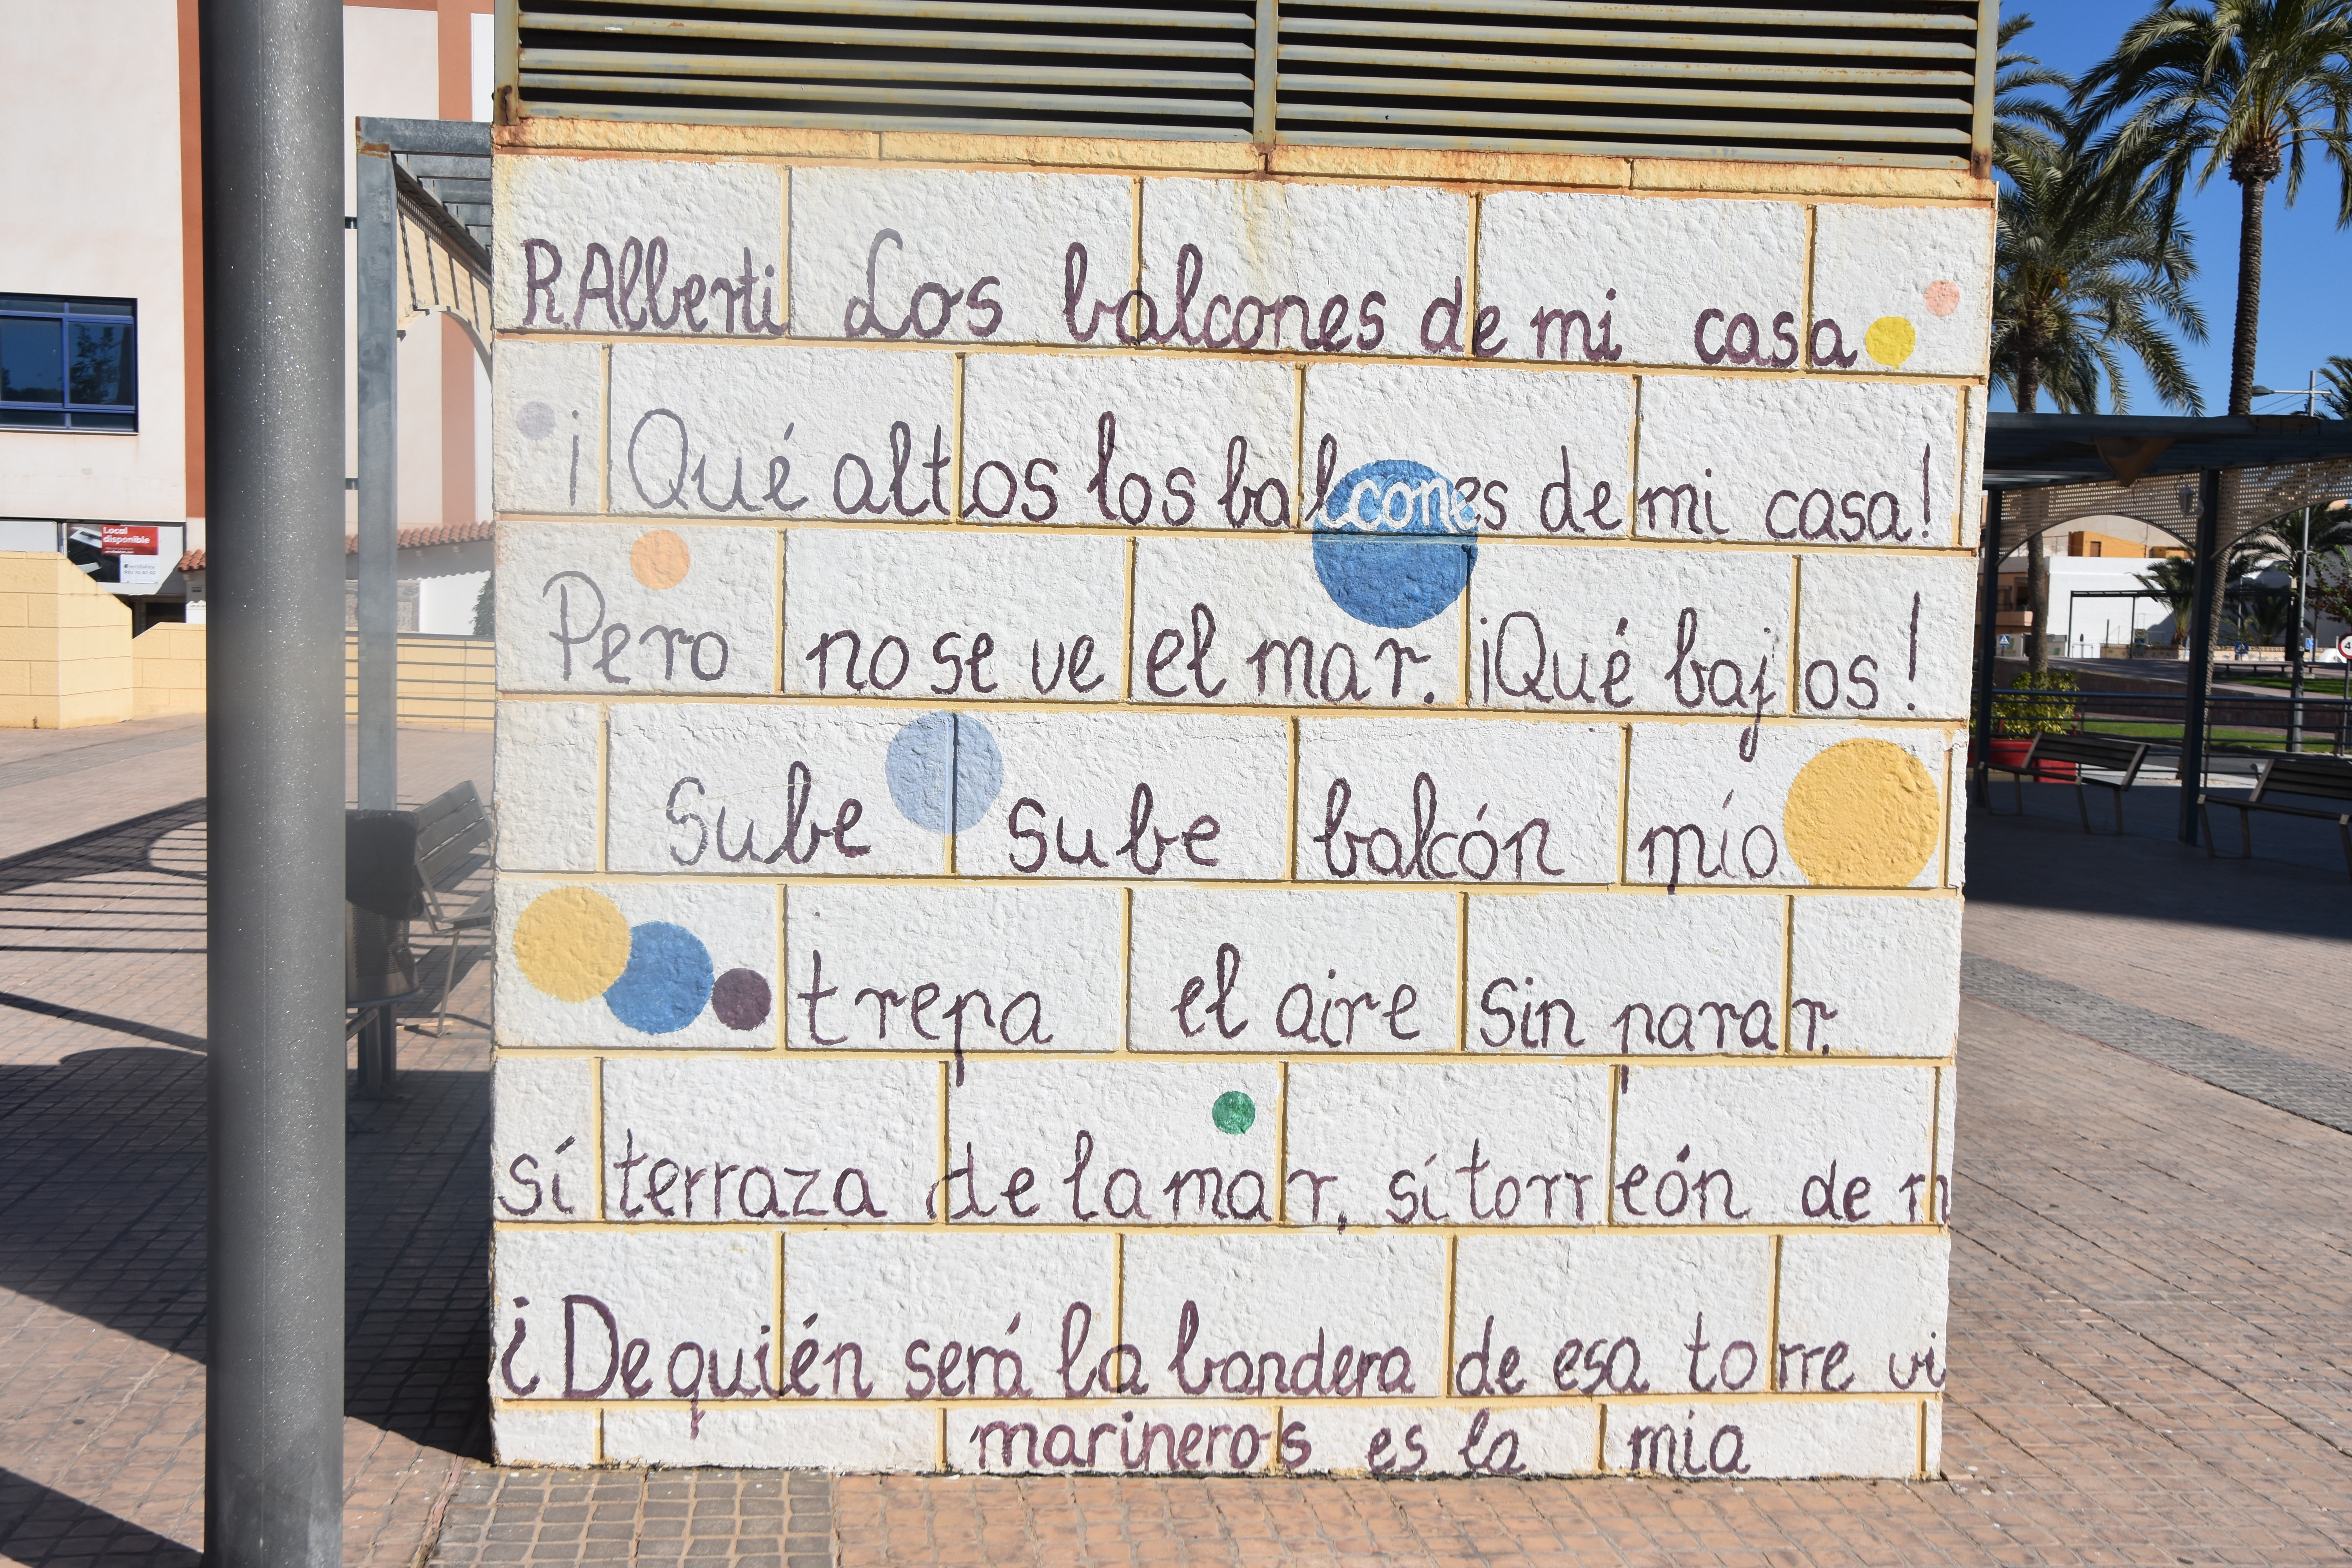 R.Alberti Los balcones de mi casa
¡Qué altos los balcones de mi casa!
Pero no se ve el mar. ¡Qué bajos!
Sube sube balcón mío
trepa el aire sin parar.
sí terraza de la mar, sí torreón de
¿De quién será la bandera de esa torre vi
marineros es la mía
Local
disponible